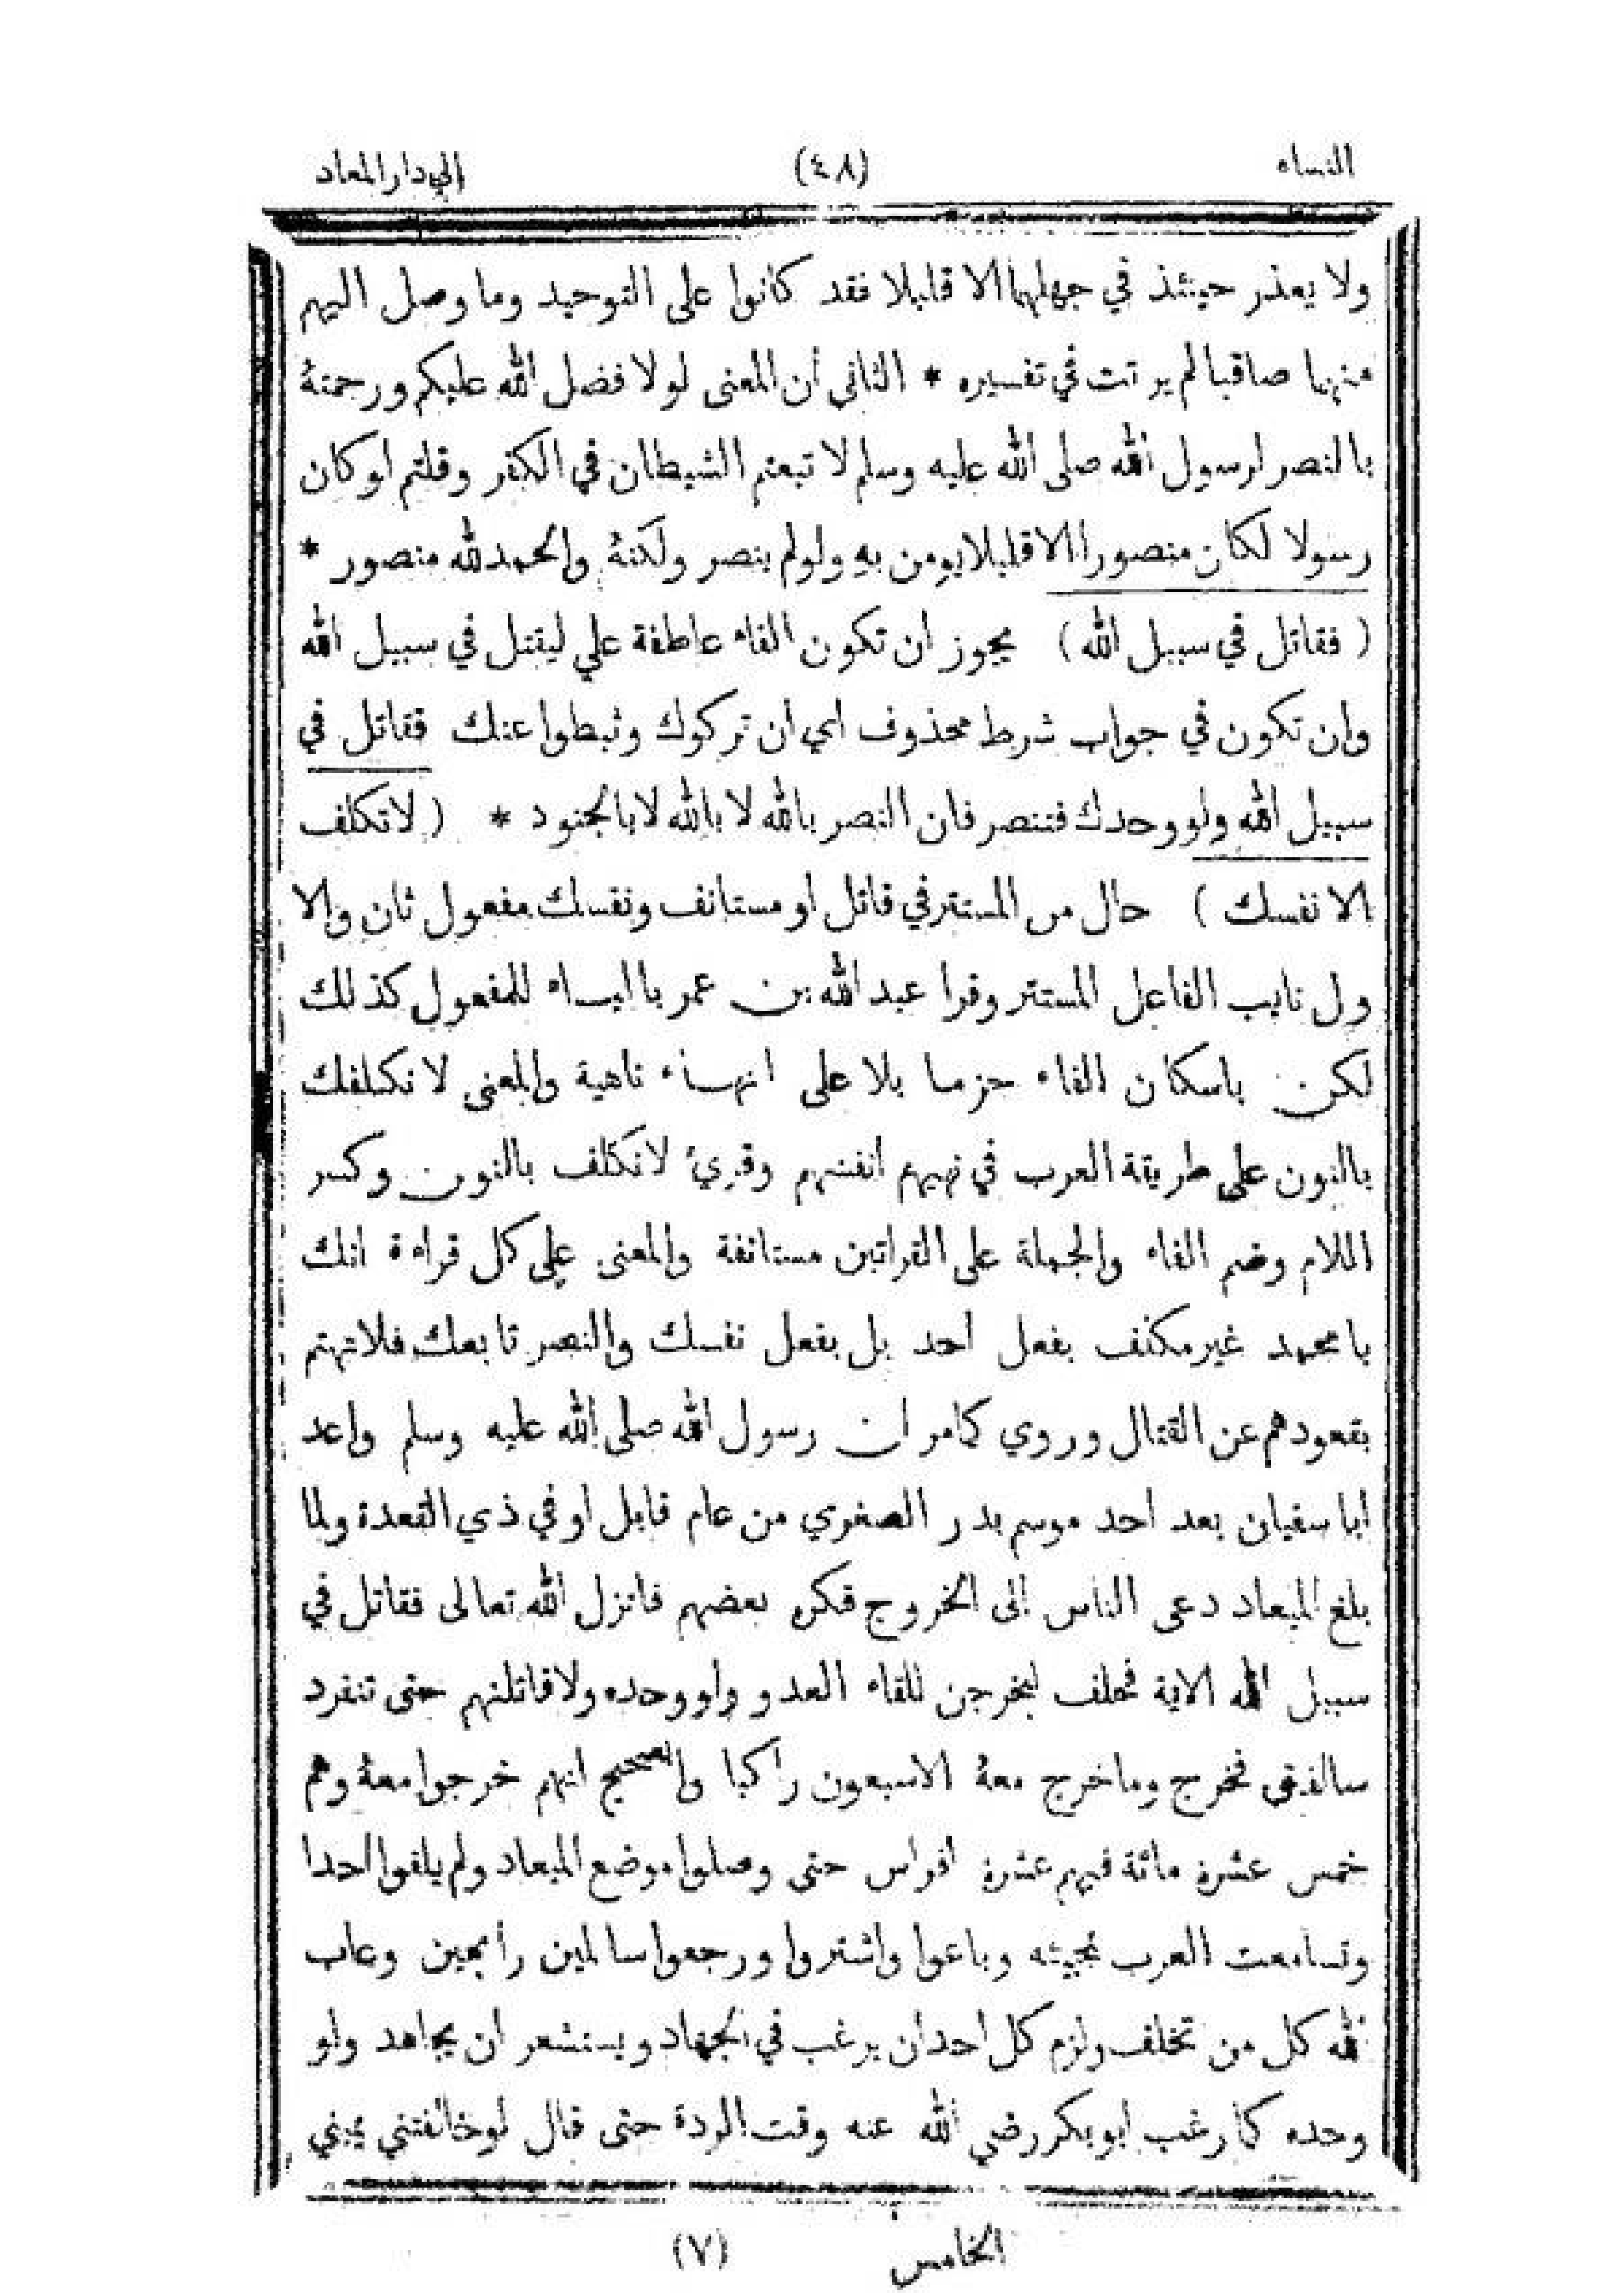 النساء (٤٨) الي دار المعاد
ولا يعذر حينئذ في جهلهما الا قليلا فقد كانوا على التوحيد وما وصل اليهم
منهما صاقبا لم يرتت في تفسيره * الثانى أن المعنى لولا فضل الله عليكم ورحمتهٔ
بالنصر لرسول الله صلى الله عليه وسلم لا تبعتم الشيطان في الكفر وقلتم لو كان
رسولا لكان منصورا الا قليلا يومن به ولو لم ينصر ولكنهٔ والحمد لله منصور *
( فقاتل في سبيل الله ) يجوز ان تكون الفاء عاطفة علي ليقتل في سبيل الله
وان تكون في جواب شرط محذوف اي ان تركوك وثبطوا عنك فقاتل في
سبيل الله ولو وحدك فتنصر فان النصر بالله لا بالله لا بالجنود * ( لا تكلف
الا نفسك ) حال من المستتر في قاتل او مستانف ونفسك مفعول ثان والا
ول نايب الفاعل المستتر وقرا عبد الله بن عمر با البـاء للمفعول كذلك
لكن باسكان الفاء جزما بلا على انهـا ناهية والمعنى لا نكلفك
بالنون على طريقة العرب في نهيهم انفسهم وقرئ لا نكلف بالنون وكسر
اللام وضم الفاء والجملة على القراتين مستانفة والمعنى علي كل قراءة انك
يا محمد غير مكلف بفعل احد بل بفعل نفسك والنصر تابعك فلا تهتم
بقعودهم عن القتال وروي كما مر ان رسول الله صلى الله عليه وسلم واعد
ابا سفيان بعد احد موسم بدر الصغري من عام قابل او في ذي القعدة ولما
بلغ الميعاد دعى الناس الى الخروج فكره بعضهم فانزل الله تعالى فقاتل في
سبيل الله الاية فحلف ليخرجن للقاء العدو ولو وحده ولاقاتلنهم حتى تنفرد
سالفتى فخرج وما خرج معهٔ الا سبعون راكبا والصحيح انهم خرجوا معهٔ وهم
خمس عشرة مائة فيهم عشرة افراس حتى وصلوا موضع الميعاد ولم يلقوا احدا
وتسامعت العرب بمجيئه وباعوا واشتروا ورجعوا سالمين رابحين وعاب
الله كل من تخلف ولزم كل احد ان يرغب في الجهاد ويستشعر ان يجاهد ولو
وحده كما رغب ابو بكر رضي الله عنه وقت الردة حتى قال لو خالفتني يميني
الخامس (٧)